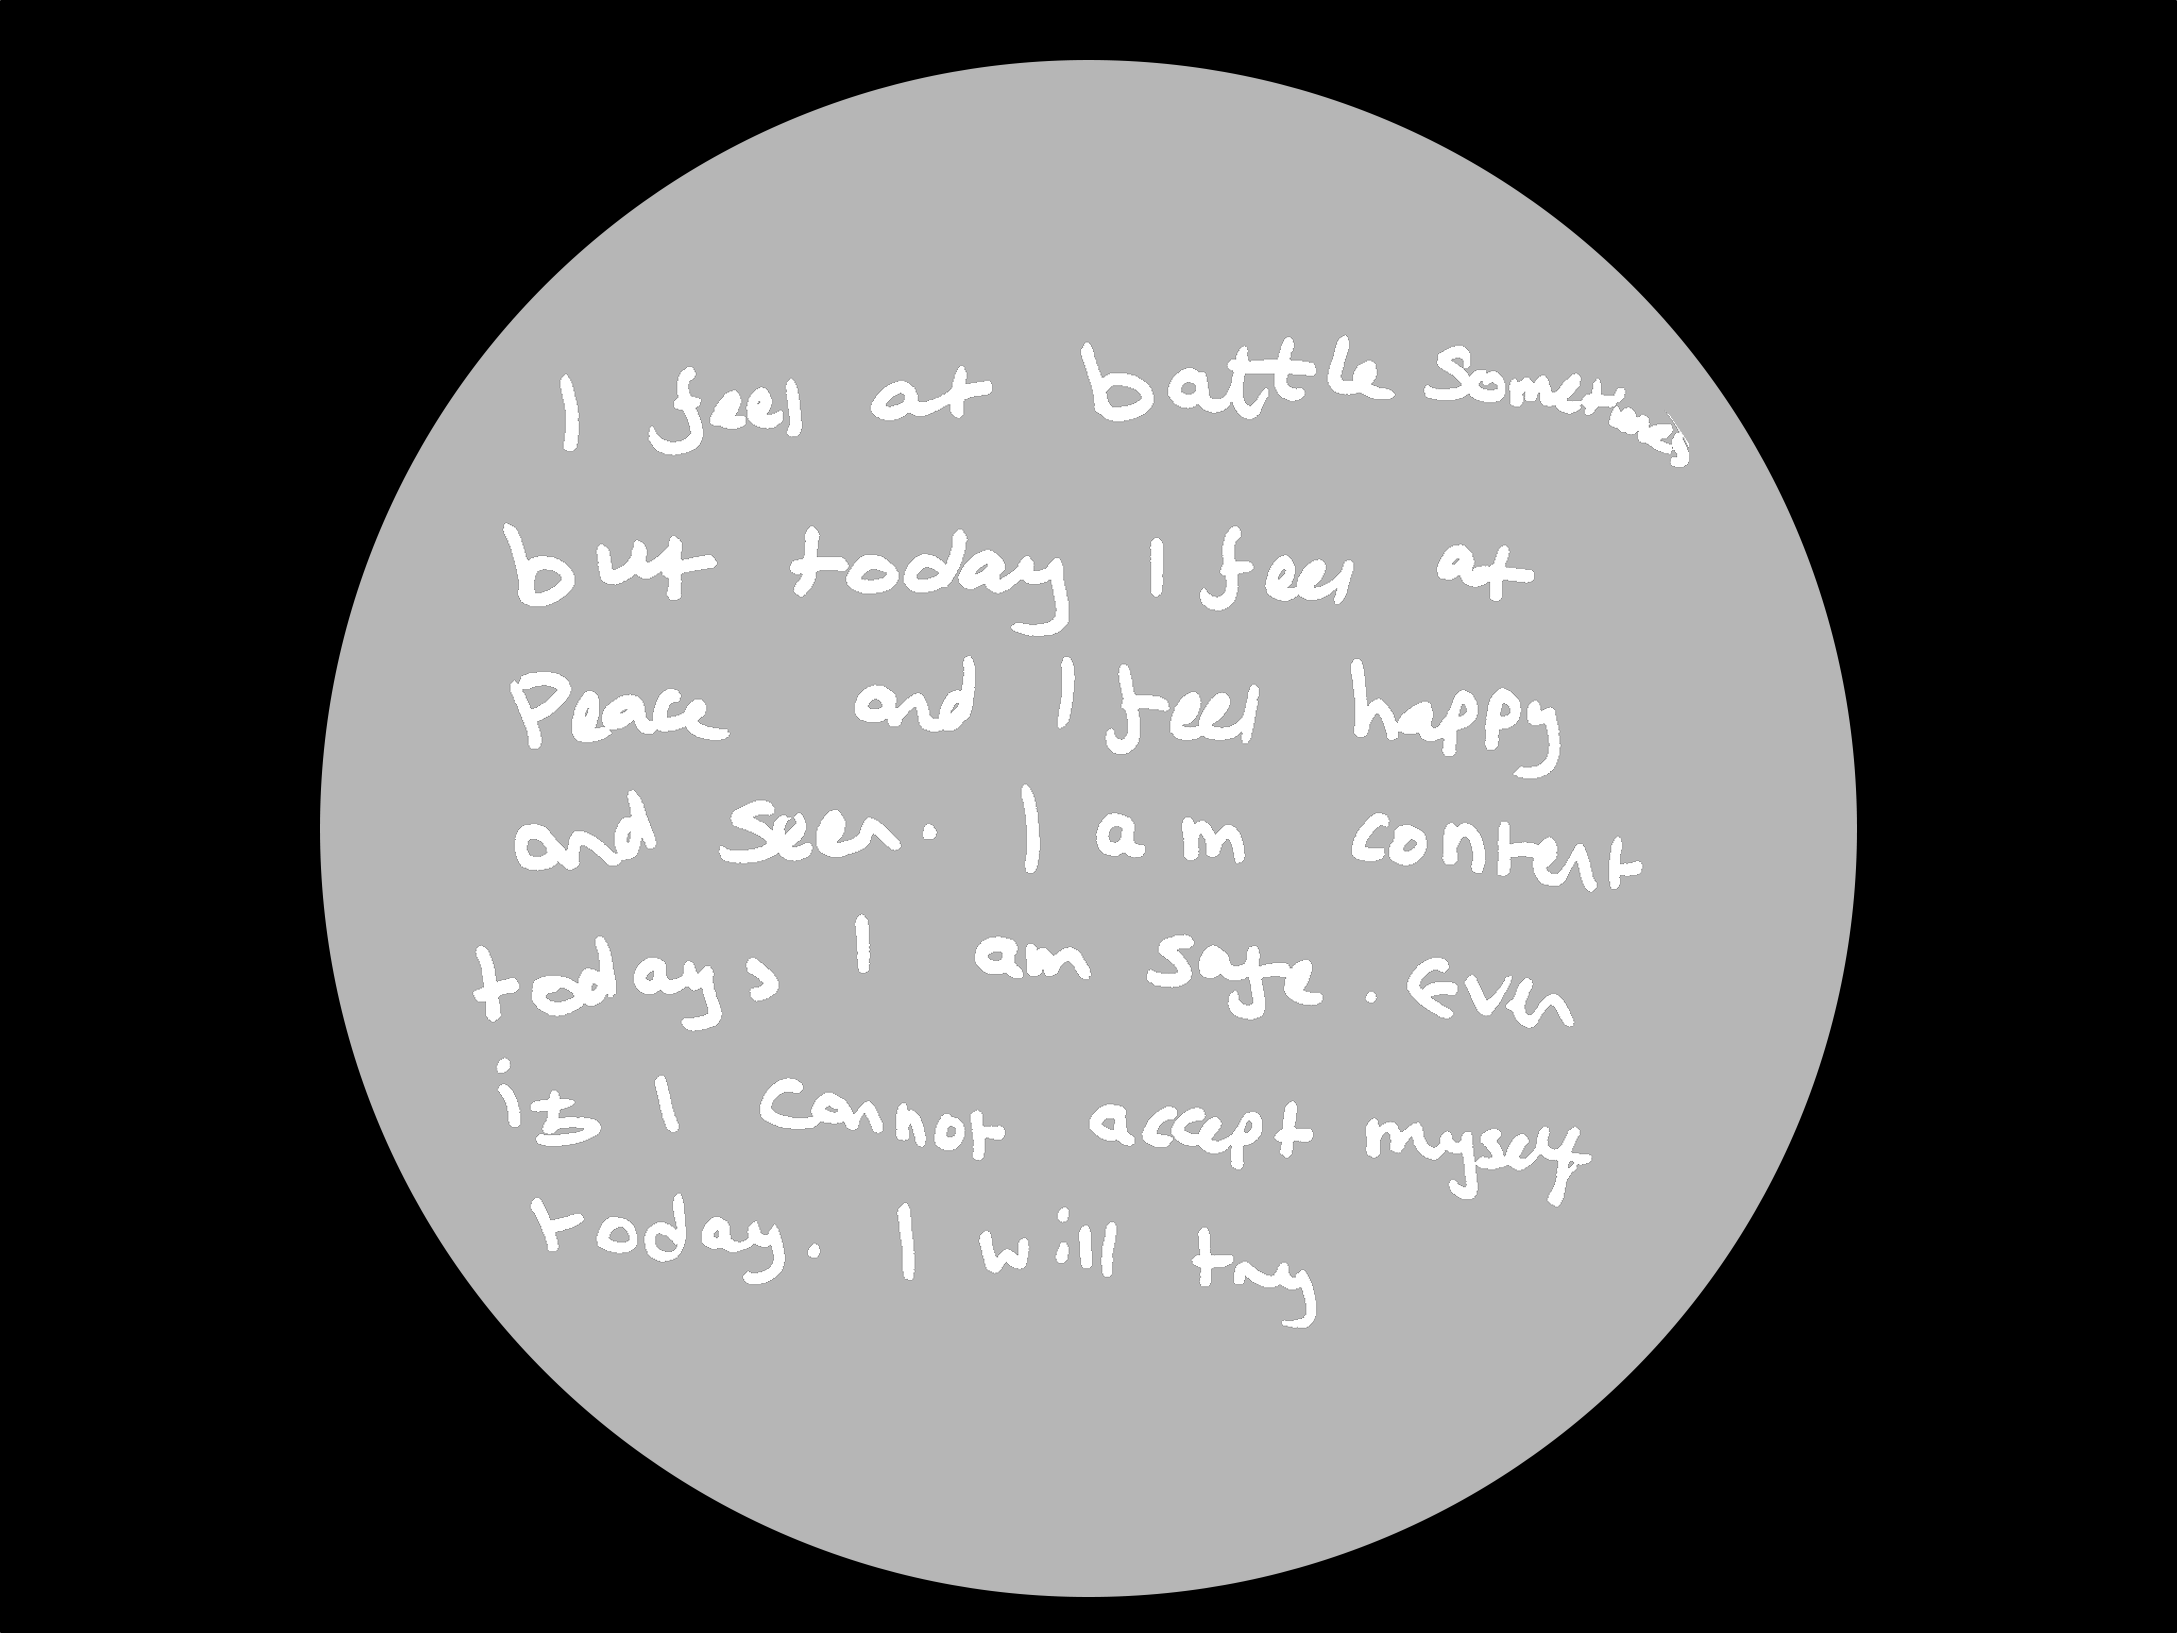 I feel at battle sometimes
but today I feel at
Peace and I feel happy
and seen. I am content
today, I am safe. Even
if I cannot accept myself
today. I will try